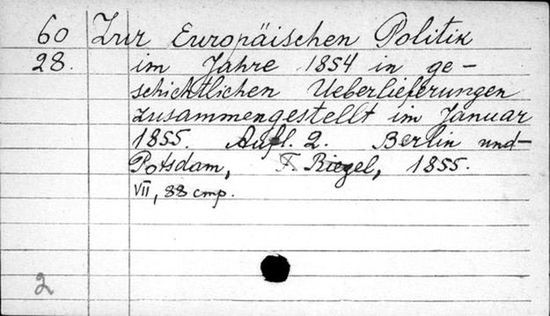 60 Zur Europäischen Politik
28. im Jahre 1854 in ge-
schichtlichen Ueberlieferungen
zusammengestellt im Januar
1855. Aufl. 2. Berlin und
Potsdam, F. Riegel, 1855.
VII, 88 стр.
2